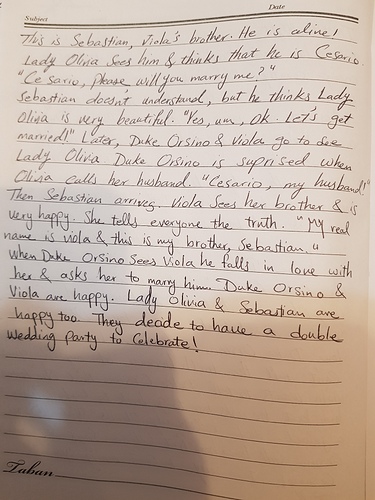 Date
Subject
This is Sebastian, Viola's brother. He is aline!
Lady Olivia sees him & thinks that he is Cesario.
"Ce'sario, please will you marry me?"
Sebastian doesn't understand, but he thinks Lady
Olivia is very beautiful. "Yes, um, Ok. Let's get
married!" Later, Duke Orsino & Viola go to see
Lady Olivia Duke Orsino is suprised when
Olivia calls her husband. "Cesario, my husband!"
Then Sebastian arrives. Viola sees her brother & is
very happy. She tells everyone the truth. "My real
name is viola & this is my brother, Sebastian."
When Duke Orsino Sees Viola he falls in love with
her & asks her to marry him. Duke Orsino &
Viola are happy. Lady Olivia & Sebastian are
happy too. They decide to have a double
wedding Party to Celebrate!
Taban